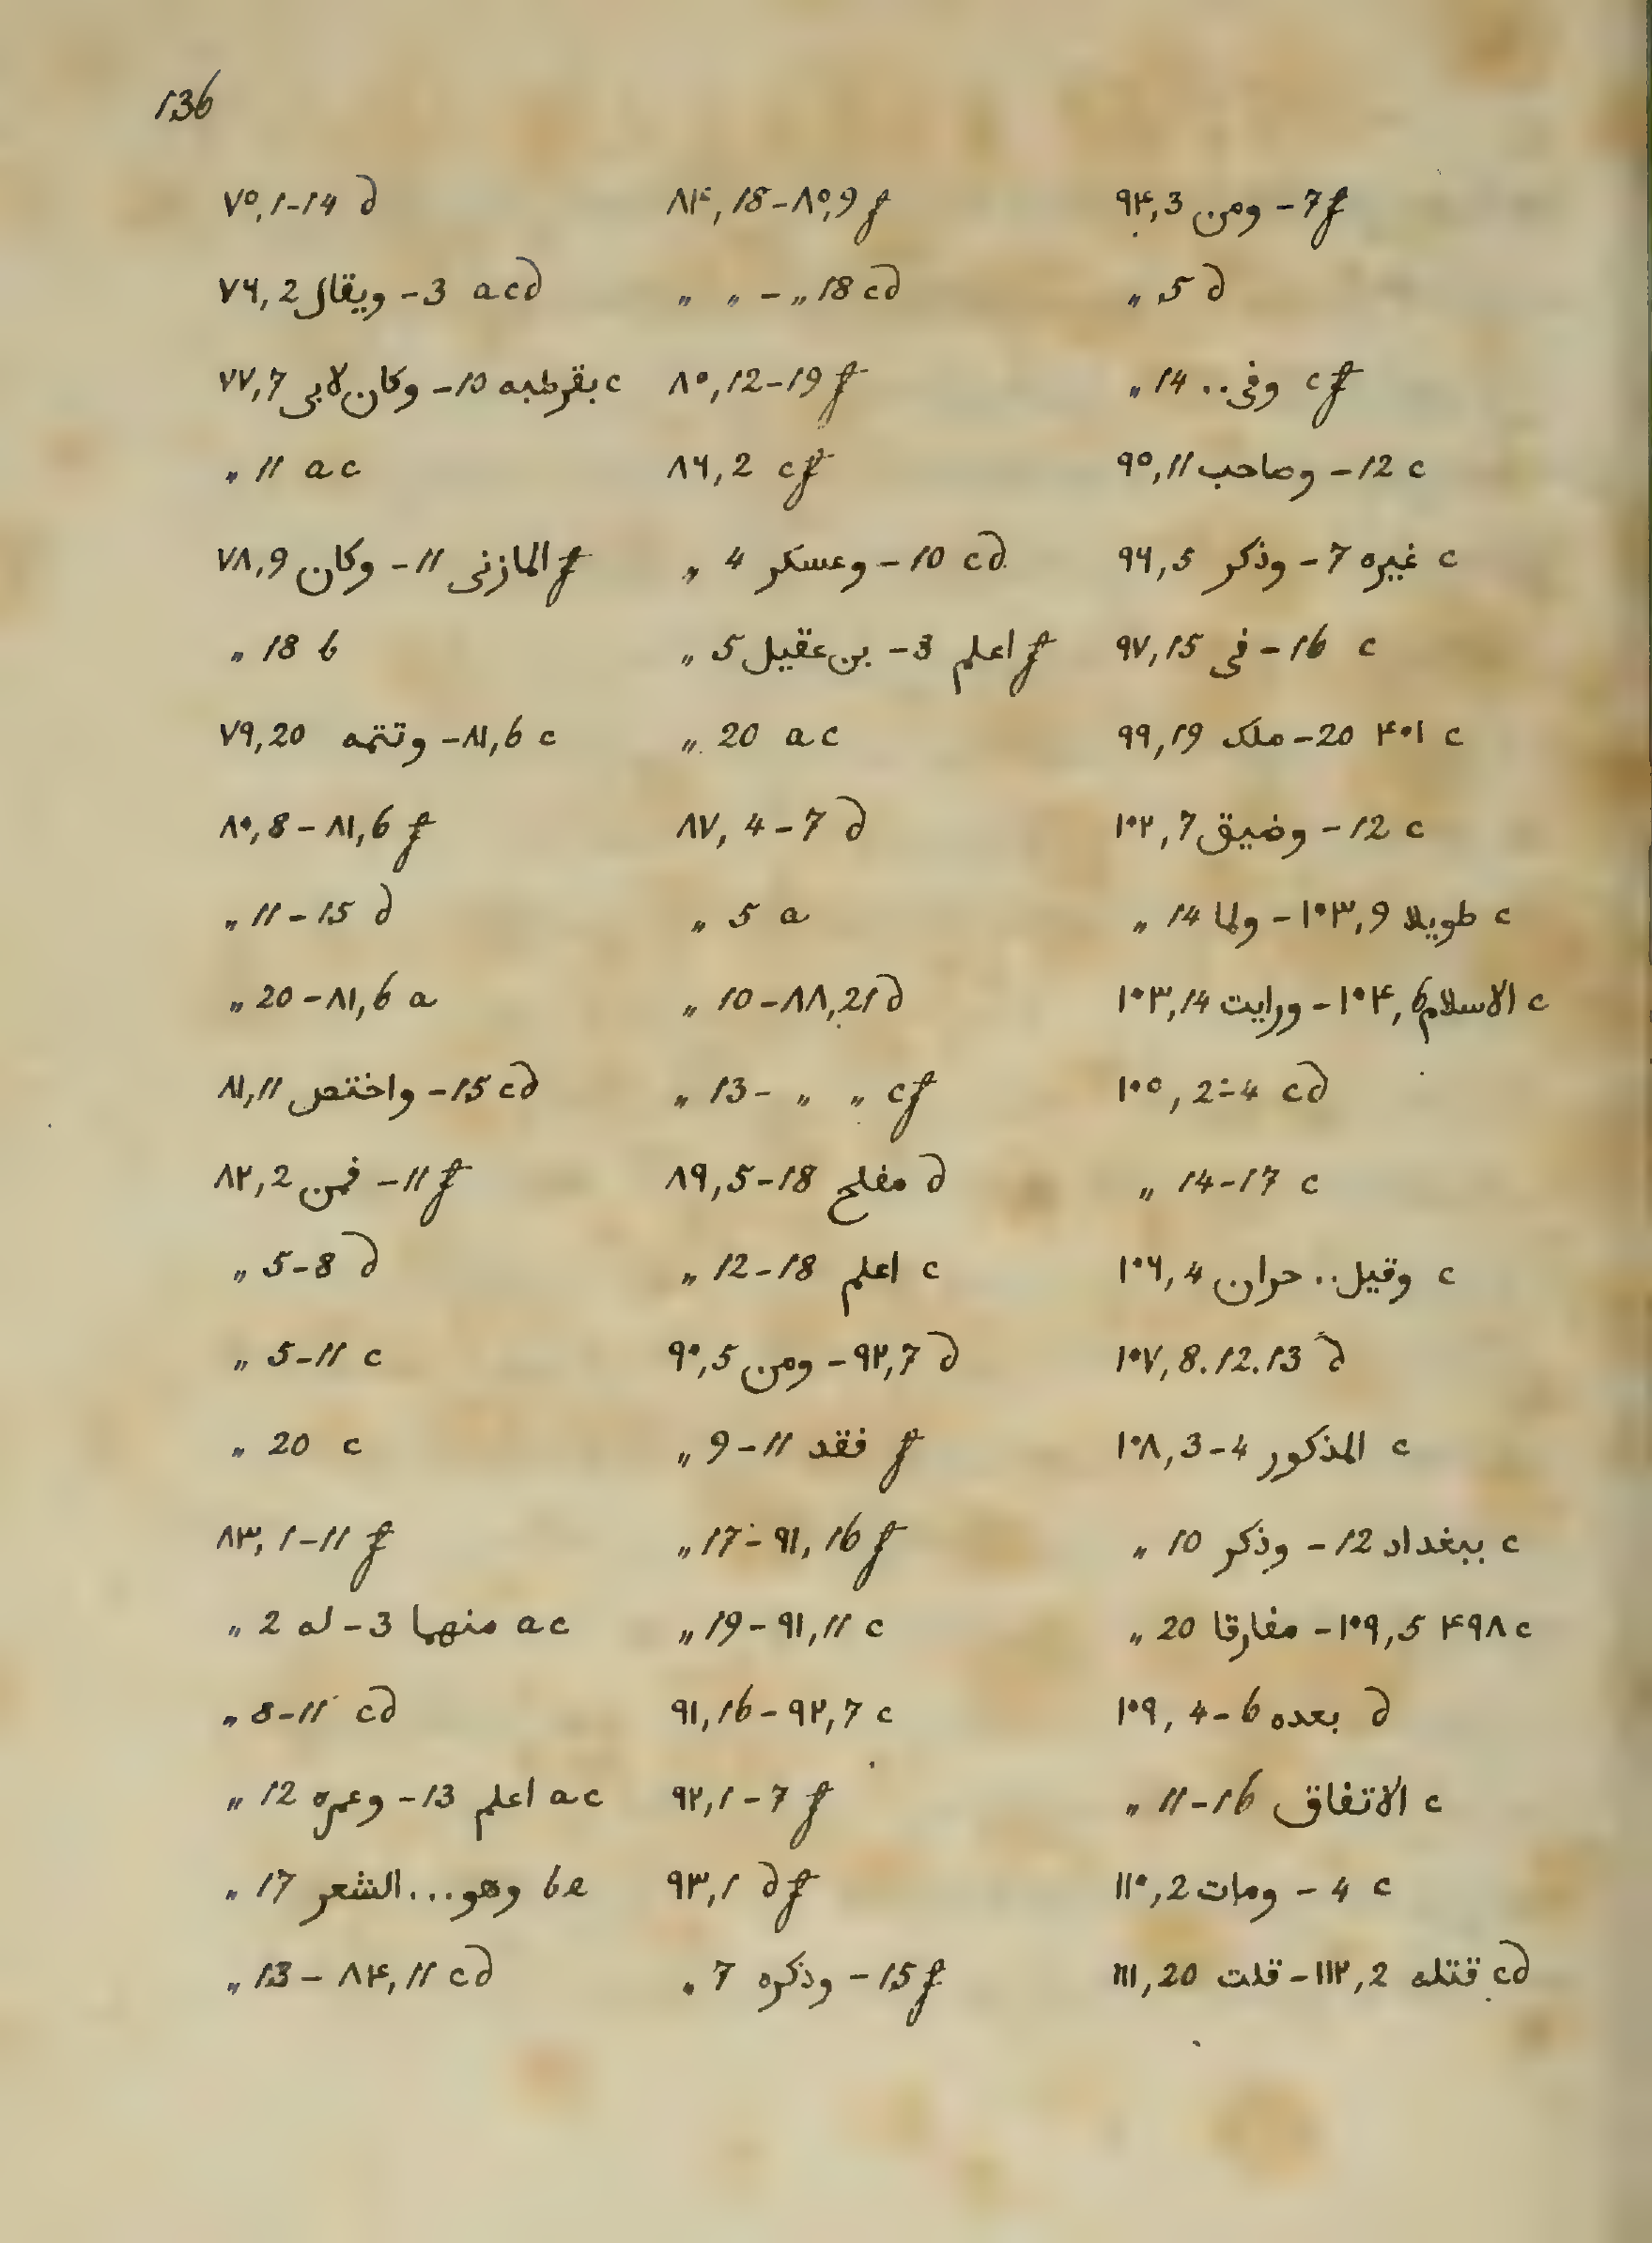 136
٧٥,1-14 d
٧۶,2 ويقال - 3 acd
٧٧,7 وكان لابى - 10 بقرطبه c
„ 11 ac
٧٨,9 وكان - 11 المازنى f
„ 18 b
٧٩,20 وتتمه - ٨١,6 c
٨٠,8 - ٨١,6 f
„ 11-15 d
„ 20 - ٨١,6 a
٨١,11 واختص - 15 cd
٨٢,2 فمن - 11 f
„ 5-8 d
„ 5-11 c
„ 20 c
٨٣,1-11 f
„ 2 له - 3 منهما ac
„ 8-11 cd
„ 12 وعمره - 13 اعلم ac
„ 17 وهو...الشعر be
„ 13 - ٨۴,11 cd
٨۴,18-٨٥,9 f
„ „ - „ 18 cd
٨٥,12-19 f
٨۶,2 cf
„ 4 وعسكر - 10 cd
„ 5 بن عقيل - 3 اعلم f
„ 20 ac
٨٧,4-7 d
„ 5 a
„ 10-٨٨,21 d
„ 13- „ „ cf
٨٩,5-18 مفلح d
„ 12-18 اعلم c
٩٠,5 ومن - ٩٢,7 d
„ 9-11 فقد f
„ 17-٩١,16 f
„ 19-٩١,11 c
٩١,16-٩٢,7 c
٩٢,1-7 f
٩٣,1 df
„ 7 وذكره - 15 f
٩۴,3 ومن - 7 f
„ 5 d
„ 14 وفى.. cf
٩٥,11 وصاحب - 12 c
٩۶,5 وذكر - 7 غيره c
٩٧,15 فى - 16 c
٩٩,19 ملك - 20 ۴٠١ c
١٠٢,7 وضيق - 12 c
„ 14 ولما - ١٠٣,9 طويلا c
١٠٣,14 ورايت - ١٠۴,6 الاسلام c
١٠٥,2-4 cd
„ 14-17 c
١٠۶,4 وقيل..حران c
١٠٧,8.12.13 d
١٠٨,3-4 المذكور c
„ 10 وذكر - 12 ببغداد c
„ 20 مفارقا - ١٠٩,5 ۴٩٨ c
١٠٩,4-6 بعده d
„ 11-16 الاتفاق c
١١٠,2 ومات - 4 c
١١١,20 قلت - ١١٢,2 قتله cd